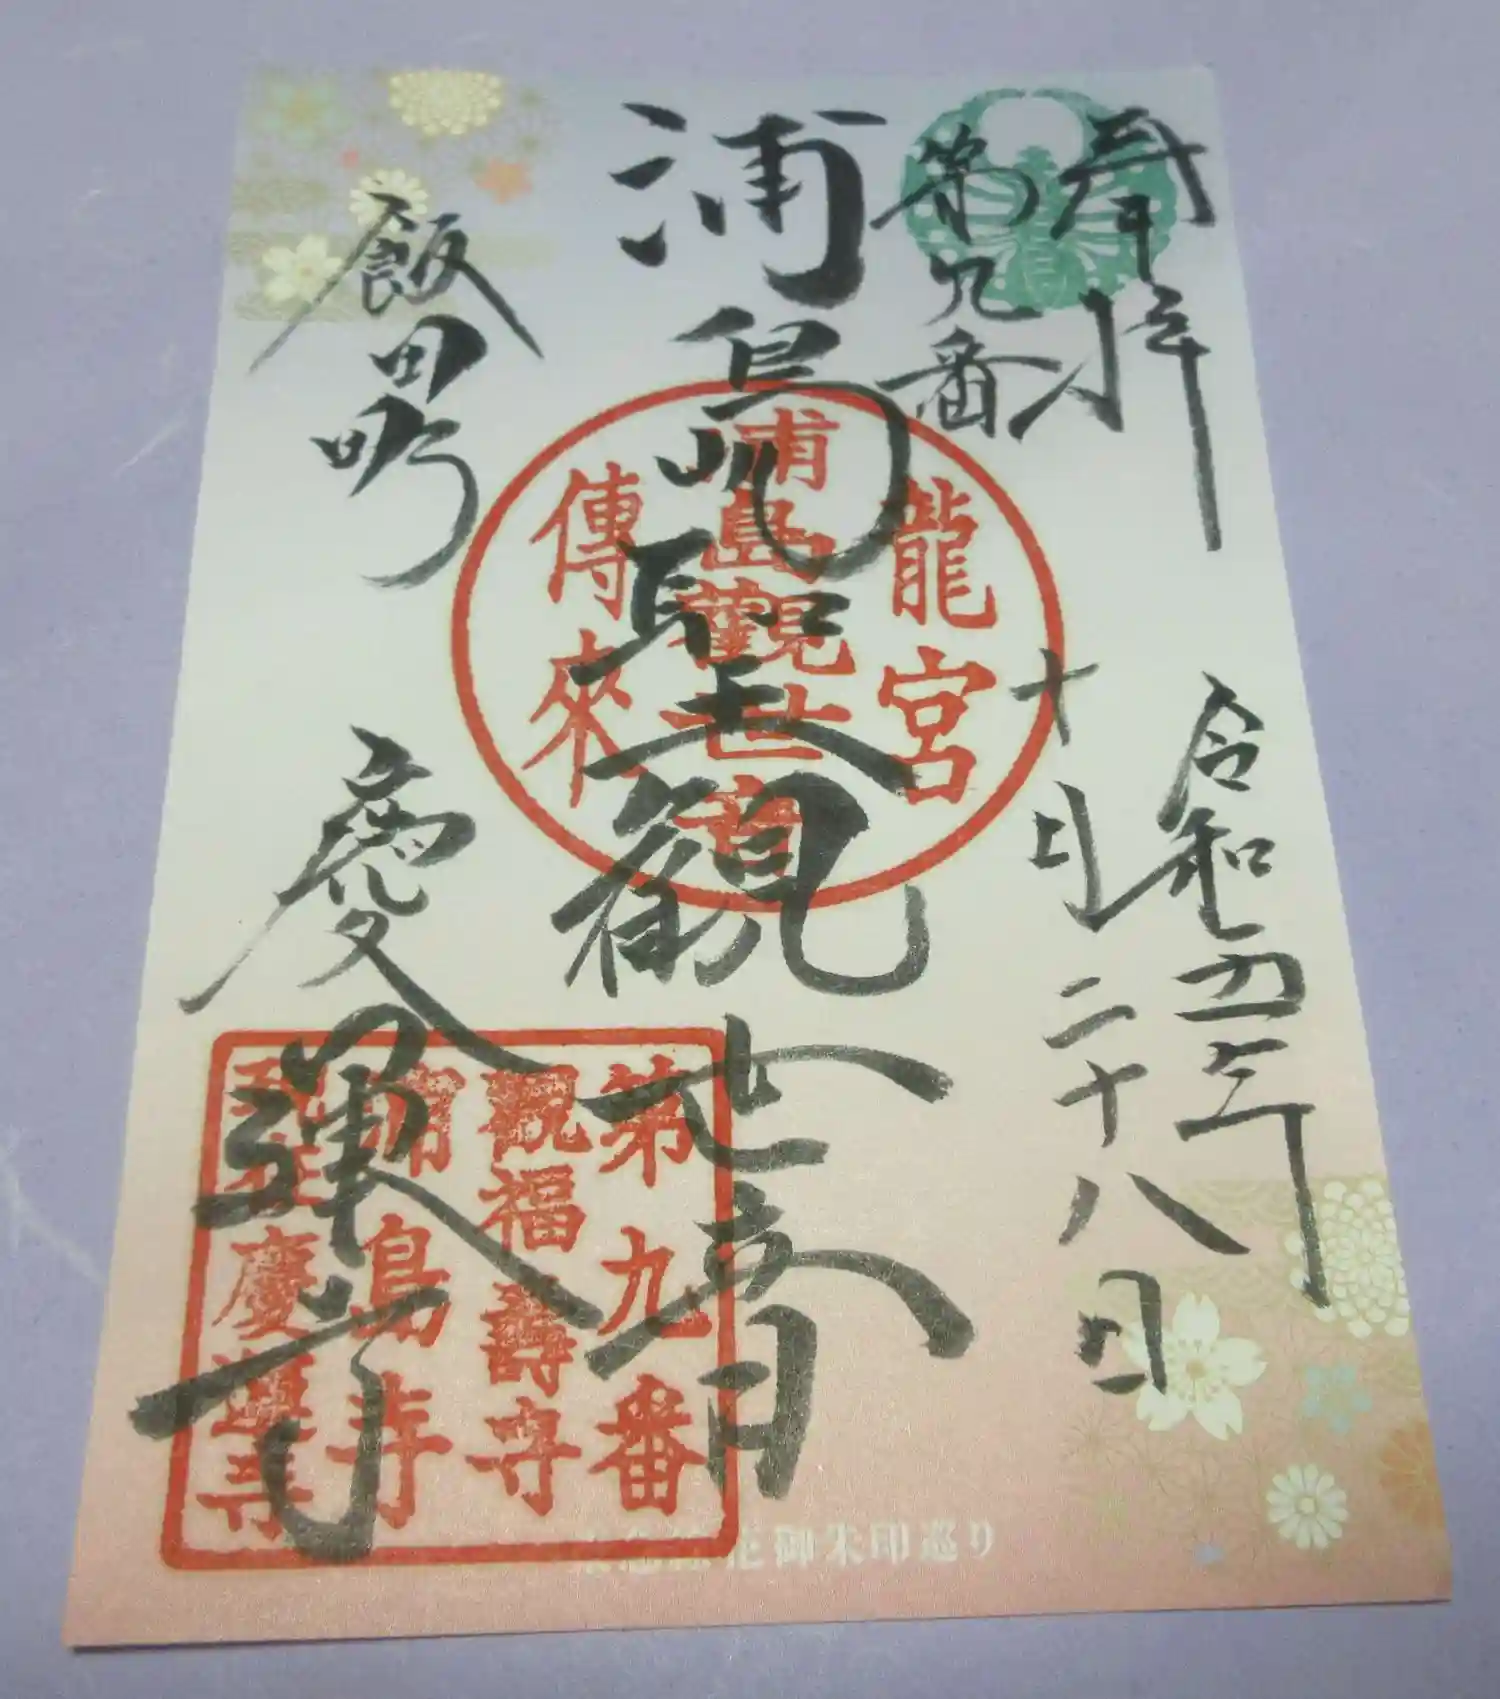 奉拝
第九番
令和四年
十月二十八日
浦島聖観世音
飯田町
慶運寺
龍宮
浦島観世音
傳來
第九番
観福壽寺
浦島寺
慶運寺
御朱印巡り